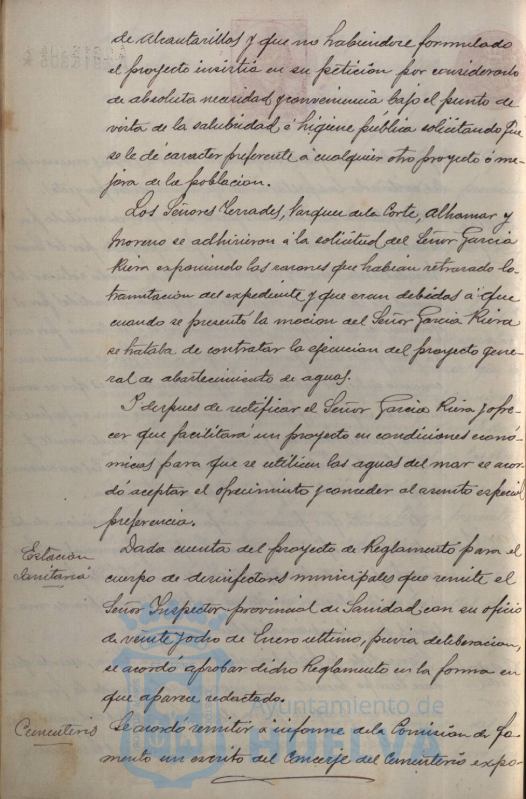 de Alcantarillas y que no habiendose formulado
el proyecto insistia en su peticion por considerarlo
de absoluta necesidad y conveniencia bajo el punto de
vista de la salubridad é higiene pública solicitando que
se le dé caracter preferente á cualquier otro proyecto ó me-
jora de la poblacion.
Los Señores Terrades, Vazquez de la Corte, Alhamar y
Moreno se adhirieron á la solicitud del Señor Garcia
Riera exponiendo las razones que habian retrasado la
tramitación del expediente y que eran debidas á que
cuando se presentó la mocion del Señor Garcia Riera
se trataba de contratar la ejecucion del proyecto gene-
ral de abastecimiento de aguas.
Y despues de rectificar el Señor Garcia Riera y ofre-
cer que facilitará un proyecto en condiciones econó-
micas para que se utilicen las aguas del mar se acor-
dó aceptar el ofrecimiento y conceder al asunto especial
preferencia.
Estacion
Sanitaria
Dada cuenta del proyecto de Reglamento para el
cuerpo de desinfectores municipales que remite el
Señor Inspector provincial de Sanidad con su oficio
de veinte y ocho de Enero ultimo, previa deliberacion,
se acordó aprobar dicho Reglamento en la forma en
que aparece redactado.
Cementerio
Se acordó remitir á informe de la Comision de Fo-
mento un escrito del Conserje del Cementerio expo-
Ayuntamiento de
HUELVA